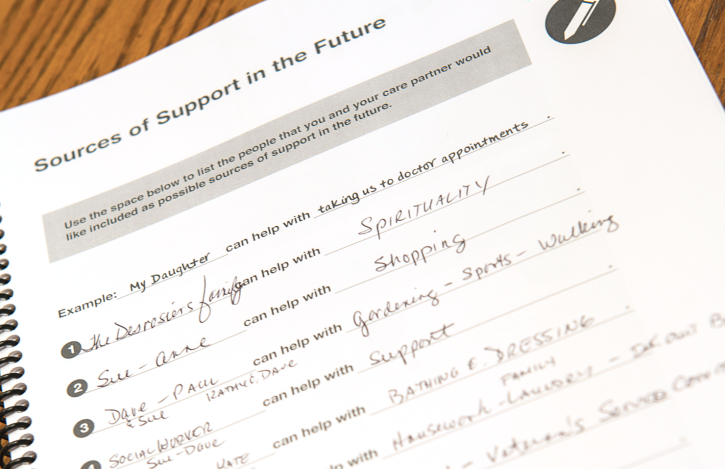 Sources of Support in the Future
Use the space below to list the people that you and your care partner would
like included as possible sources of support in the future.
Example: My Daughter can help with taking us to doctor appointments.
1 The Desrosiers family can help with SPIRITUALITY
2 Sue-Anne can help with Shopping
3 Dave - Paul can help with Gardening - Sports - Walking
& Sue KATHY & DAVE
SOCIAL WORKER can help with Support
Sue-Dave
can help with BATHING & DRESSING
FAMILY
with Housework - LAUNDRY -
- Veteran's Service